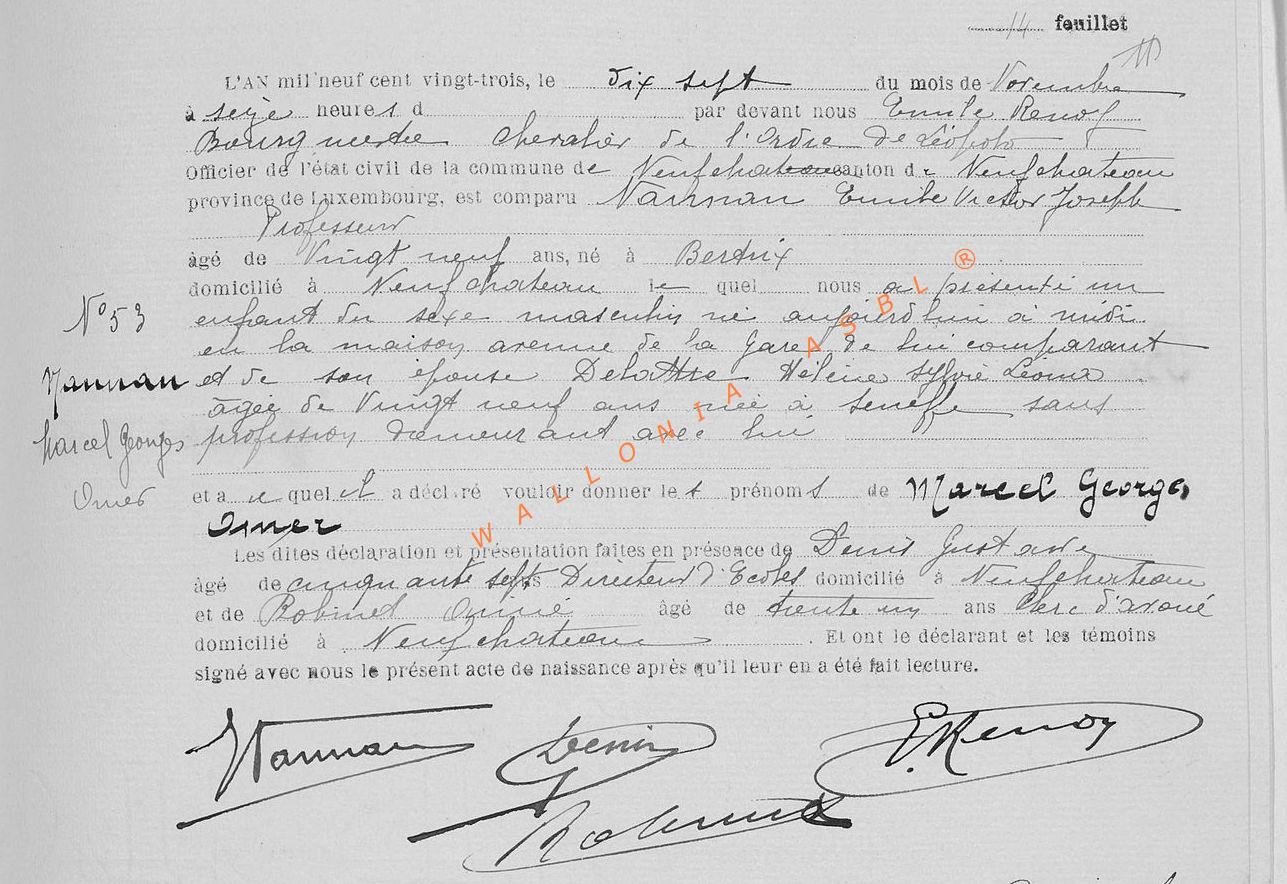 14 feuillet
L'AN mil neuf cent vingt-trois, le dix sept du mois de Novembre
à seize heures d par devant nous Emile Renoy
Bourgmestre Chevalier de l'Ordre de Léopold
Officier de l'état civil de la commune de Neufchateau canton de Neufchateau
province de Luxembourg, est comparu Nannan Emile Victor Joseph
Professeur
âgé de Vingt neuf ans, né à Bertrix
domicilié à Neufchateau le quel nous a présenté un
N° 53
enfant du sexe masculin né aujourd'hui à midi
en la maison avenue de la Gare de lui comparant
Nannan
et de son épouse Delattre Hélène Sylvie Léona
âgée de Vingt neuf ans née à Seneffe sans
Marcel Georges
Omer
profession demeurant avec lui
et auquel il a déclaré vouloir donner les prénoms de Marcel Georges
Omer
Les dites déclaration et présentation faites en présence de Denis Gustave
âgé de cinquante sept ans Directeur d'Ecoles domicilié à Neufchateau
et de Robinet âgé de trente un ans Clerc d'avoué
domicilié à Neufchateau. Et ont le déclarant et les témoins
signé avec nous le présent acte de naissance après qu'il leur en a été fait lecture.
Nannan Denis E. Renoy
Robinet
WALLONIA ASBL ®